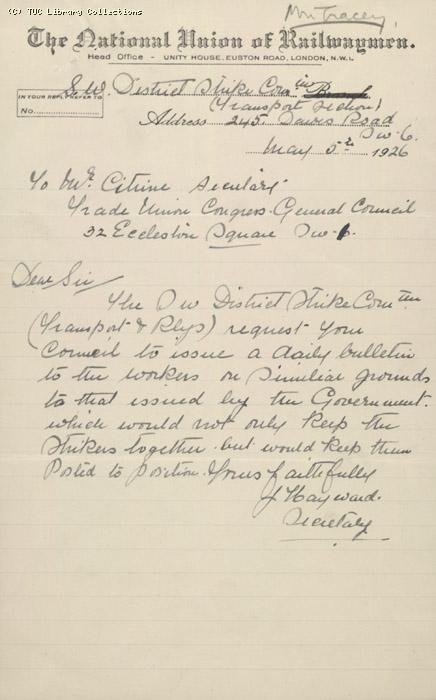 (c) TUC Library Collections
Mr Tracey
The National Union of Railwaymen.
Head Office - UNITY HOUSE, EUSTON ROAD, LONDON, N.W.1.
S.W. District Strike Com tee Branch
IN YOUR REPLY REFER TO
No.
(Transport Section)
Address 245 Road
SW. 6.
May 5th 1926
To Mr. Citrine Secretary
Trade Union Congress General Council
32 Eccleston Square SW 1.
Dear Sir
The SW District Strike Com tee
(Transport & Rlys) request your
Council to issue a daily bulletin
to the workers on Similiar grounds
to that issued by the Government.
which would not only keep the
Strikers together. but would keep them
Posted to position. Yours faithfully
J Hayward.
Secretary